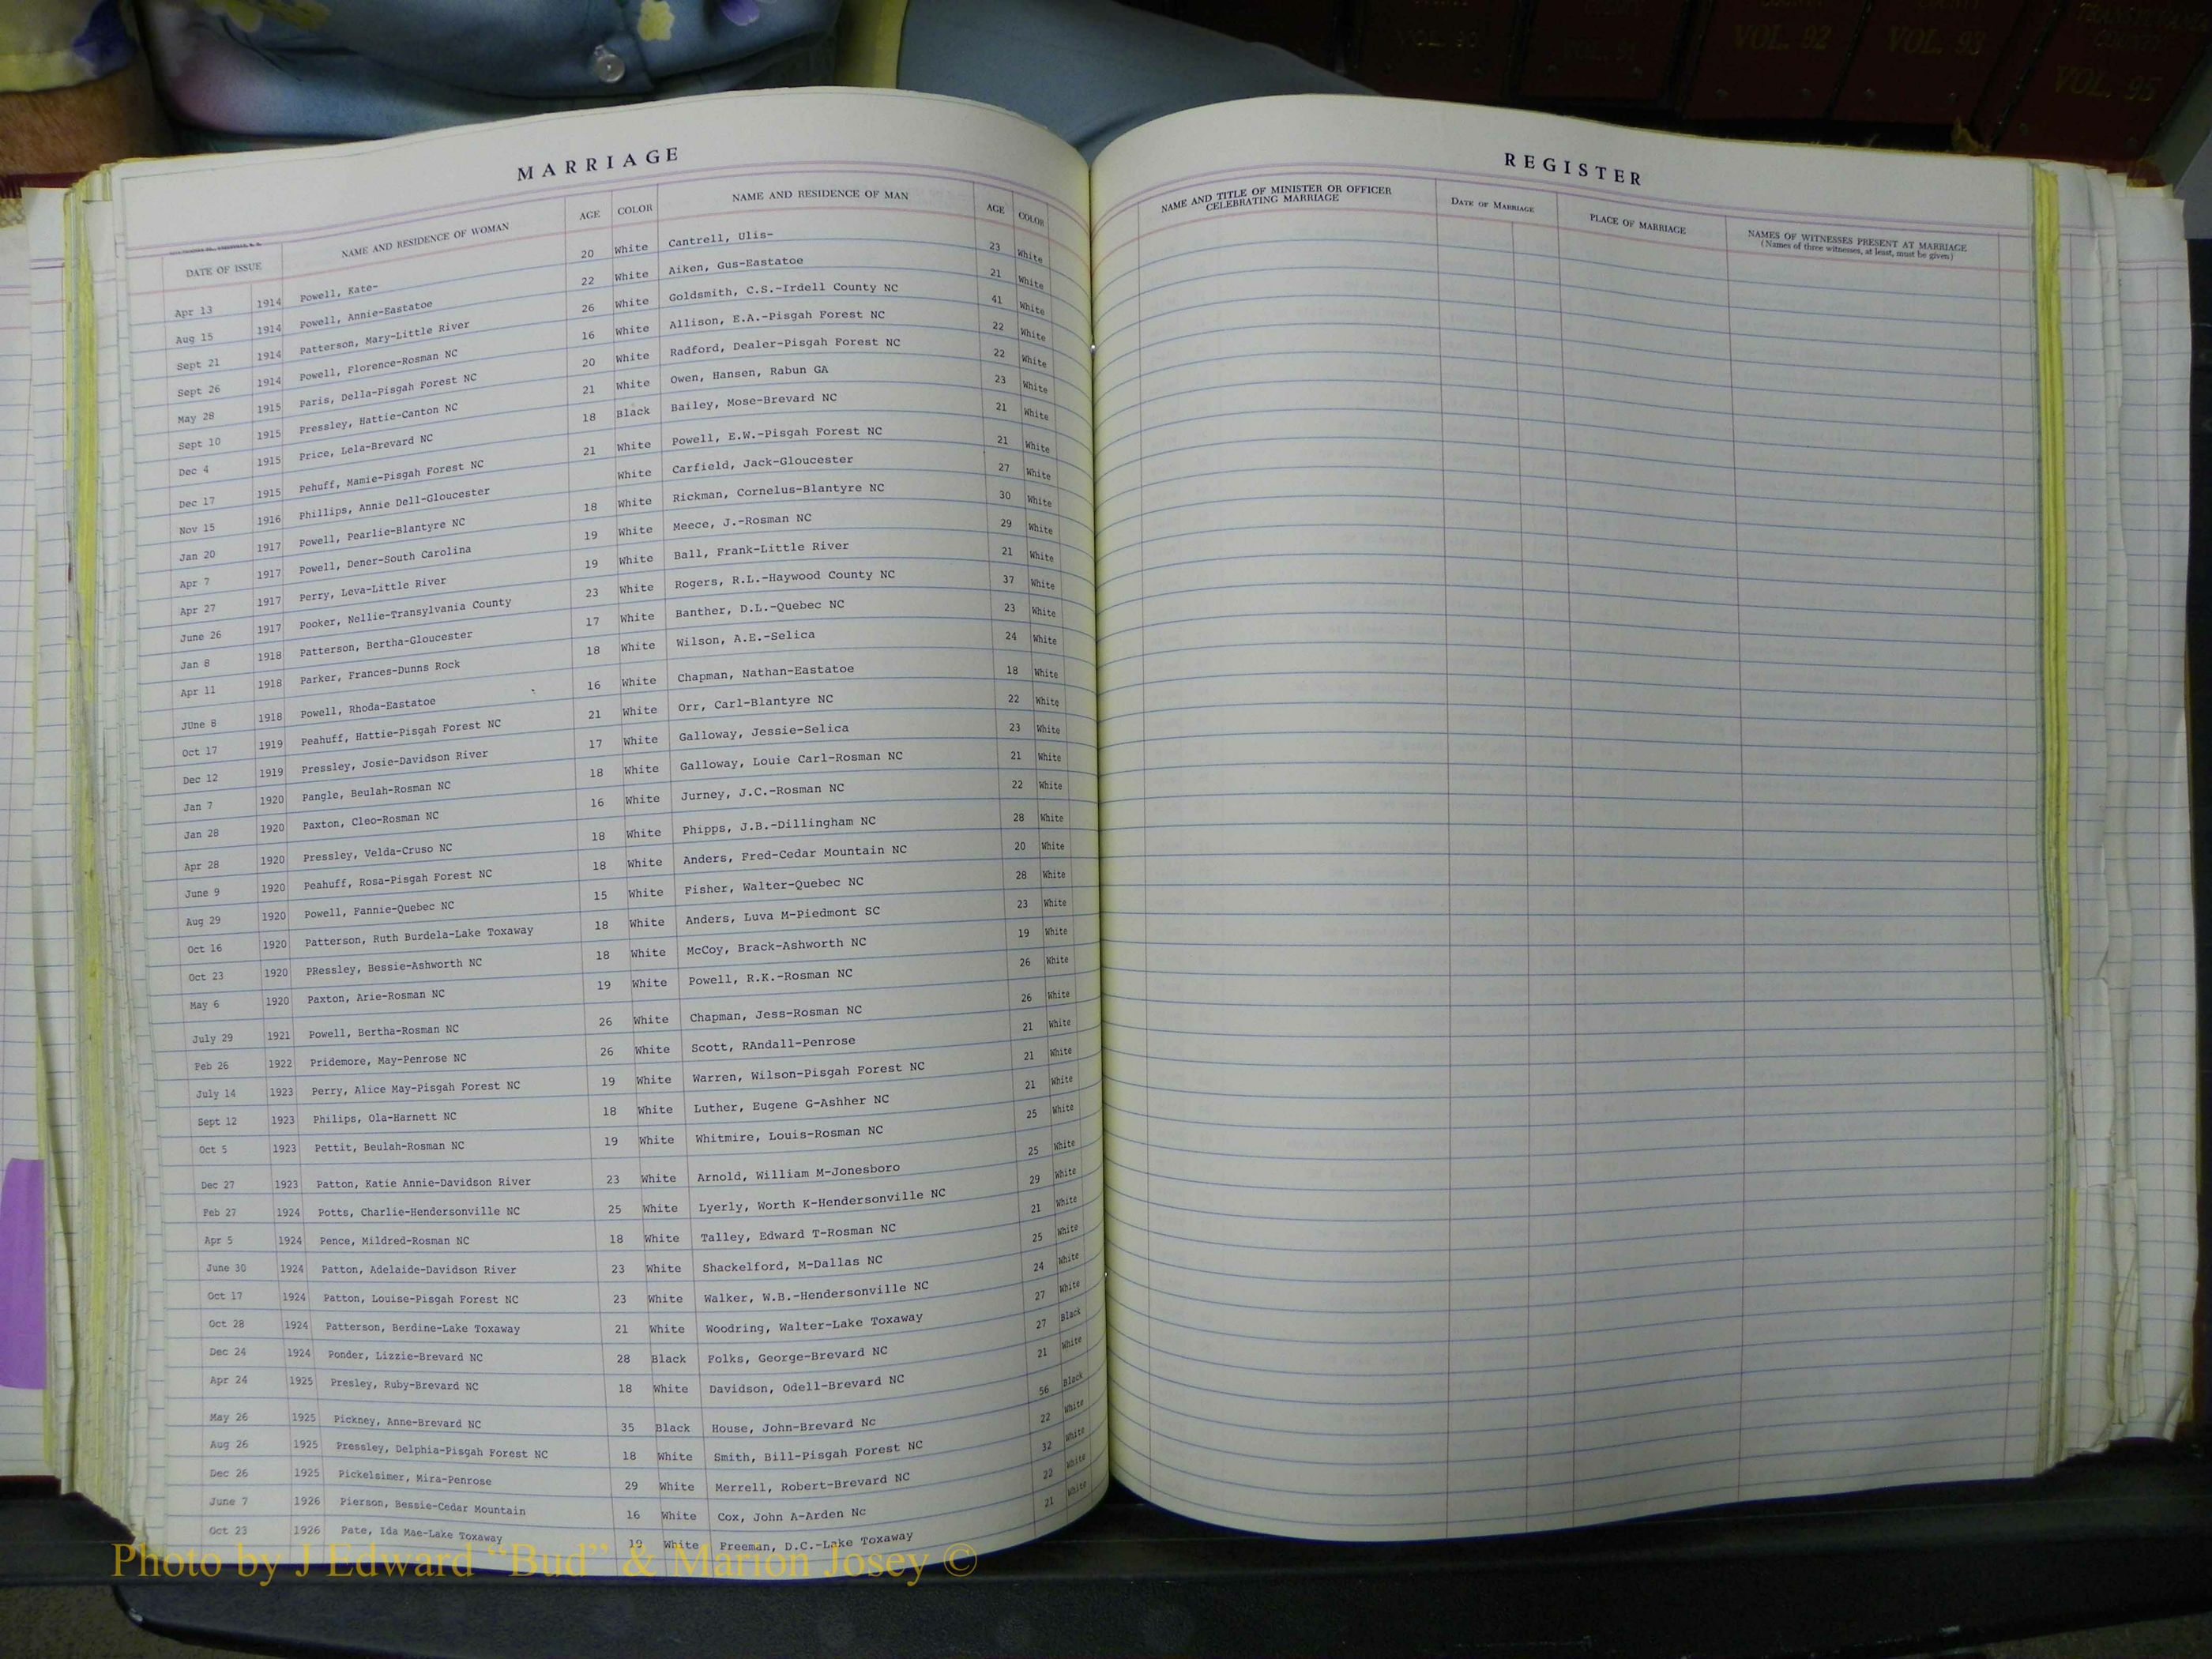 VOL. 90
VOL. 91
VOL. 92
VOL. 93
VOL. 95
MARRIAGE
DATE OF ISSUE NAME AND RESIDENCE OF WOMAN AGE COLOR NAME AND RESIDENCE OF MAN AGE COLOR
Apr 13 1914 Powell, Kate- 20 White Cantrell, Ulis- 23 White
Aug 15 1914 Powell, Annie-Eastatoe 22 White Aiken, Gus-Eastatoe 21 White
Sept 21 1914 Patterson, Mary-Little River 26 White Goldsmith, C.S.-Irdell County NC 41 White
Sept 26 1914 Powell, Florence-Rosman NC 16 White Allison, E.A.-Pisgah Forest NC 22 White
May 28 1915 Paris, Della-Pisgah Forest NC 20 White Radford, Dealer-Pisgah Forest NC 22 White
Sept 10 1915 Pressley, Hattie-Canton NC 21 White Owen, Hansen, Rabun GA 23 White
Dec 4 1915 Price, Lela-Brevard NC 18 Black Bailey, Mose-Brevard NC 21 White
Dec 17 1915 Pehuff, Mamie-Pisgah Forest NC 21 White Powell, E.W.-Pisgah Forest NC 21 White
Nov 15 1916 Phillips, Annie Dell-Gloucester White Carfield, Jack-Gloucester 27 White
Jan 20 1917 Powell, Pearlie-Blantyre NC 18 White Rickman, Cornelus-Blantyre NC 30 White
Apr 7 1917 Powell, Dener-South Carolina 19 White Meece, J.-Rosman NC 29 White
Apr 27 1917 Perry, Leva-Little River 19 White Ball, Frank-Little River 21 White
June 26 1917 Pooker, Nellie-Transylvania County 23 White Rogers, R.L.-Haywood County NC 37 White
Jan 8 1918 Patterson, Bertha-Gloucester 17 White Banther, D.L.-Quebec NC 23 White
Apr 11 1918 Parker, Frances-Dunns Rock 18 White Wilson, A.E.-Selica 24 White
JUne 8 1918 Powell, Rhoda-Eastatoe 16 White Chapman, Nathan-Eastatoe 18 White
Oct 17 1919 Peahuff, Hattie-Pisgah Forest NC 21 White Orr, Carl-Blantyre NC 22 White
Dec 12 1919 Pressley, Josie-Davidson River 17 White Galloway, Jessie-Selica 23 White
Jan 7 1920 Pangle, Beulah-Rosman NC 18 White Galloway, Louie Carl-Rosman NC 21 White
Jan 28 1920 Paxton, Cleo-Rosman NC 16 White Jurney, J.C.-Rosman NC 22 White
Apr 28 1920 Pressley, Velda-Cruso NC 18 White Phipps, J.B.-Dillingham NC 28 White
June 9 1920 Peahuff, Rosa-Pisgah Forest NC 18 White Anders, Fred-Cedar Mountain NC 20 White
Aug 29 1920 Powell, Fannie-Quebec NC 15 White Fisher, Walter-Quebec NC 28 White
Oct 16 1920 Patterson, Ruth Burdela-Lake Toxaway 18 White Anders, Luva M-Piedmont SC 23 White
Oct 23 1920 PRessley, Bessie-Ashworth NC 18 White McCoy, Brack-Ashworth NC 19 White
May 6 1920 Paxton, Arie-Rosman NC 19 White Powell, R.K.-Rosman NC 26 White
July 29 1921 Powell, Bertha-Rosman NC 26 White Chapman, Jess-Rosman NC 26 White
Feb 26 1922 Pridemore, May-Penrose NC 26 White Scott, RAndall-Penrose 21 White
July 14 1923 Perry, Alice May-Pisgah Forest NC 19 White Warren, Wilson-Pisgah Forest NC 21 White
Sept 12 1923 Philips, Ola-Harnett NC 18 White Luther, Eugene G-Ashher NC 21 White
Oct 5 1923 Pettit, Beulah-Rosman NC 19 White Whitmire, Louis-Rosman NC 25 White
Dec 27 1923 Patton, Katie Annie-Davidson River 23 White Arnold, William M-Jonesboro 25 White
Feb 27 1924 Potts, Charlie-Hendersonville NC 25 White Lyerly, Worth K-Hendersonville NC 29 White
Apr 5 1924 Pence, Mildred-Rosman NC 18 White Talley, Edward T-Rosman NC 21 White
June 30 1924 Patton, Adelaide-Davidson River 23 White Shackelford, M-Dallas NC 25 White
Oct 17 1924 Patton, Louise-Pisgah Forest NC 23 White Walker, W.B.-Hendersonville NC 24 White
Oct 28 1924 Patterson, Berdine-Lake Toxaway 21 White Woodring, Walter-Lake Toxaway 27 White
Dec 24 1924 Ponder, Lizzie-Brevard NC 28 Black Folks, George-Brevard NC 27 Black
Apr 24 1925 Presley, Ruby-Brevard NC 18 White Davidson, Odell-Brevard NC 21 White
May 26 1925 Pickney, Anne-Brevard NC 35 Black House, John-Brevard Nc 56 Black
Aug 26 1925 Pressley, Delphia-Pisgah Forest NC 18 White Smith, Bill-Pisgah Forest NC 22 White
Dec 26 1925 Pickelsimer, Mira-Penrose 29 White Merrell, Robert-Brevard NC 32 White
June 7 1926 Pierson, Bessie-Cedar Mountain 16 White Cox, John A-Arden Nc 22 White
Oct 23 1926 Pate, Ida Mae-Lake Toxaway 19 White Freeman, D.C.-Lake Toxaway 21 White
REGISTER
NAME AND TITLE OF MINISTER OR OFFICER
CELEBRATING MARRIAGE
DATE OF MARRIAGE
PLACE OF MARRIAGE
NAMES OF WITNESSES PRESENT AT MARRIAGE
(Names of three witnesses, at least, must be given)
Photo by J Edward "Bud" & Marion Josey ©